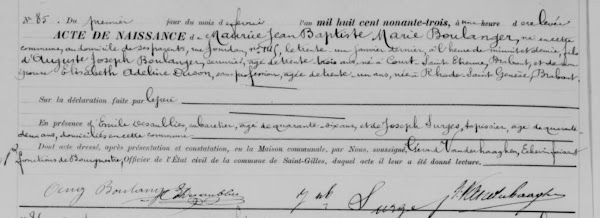 N° 85. Du premier jour du mois de février l'an mil huit cent nonante-trois, à une heure de relevée
ACTE DE NAISSANCE de Maurice Jean Baptiste Marie Boulanger, né en cette
commune, au domicile de ses parents, rue Jourdan, n° le trente un janvier dernier, à l'heure de minuit et demie, fils
d'Auguste Joseph Boulanger, âgé de trente trois ans, né à Court Saint Etienne, Brabant, et de son
épouse Elisabeth Adeline sans profession, âgée de trente un ans, née à Rhode Saint Genèse, Brabant.
Sur la déclaration faite par le père
En présence de Emile cabaretier, âgé de quarante six ans, et de Joseph Surge, tapissier, âgé de quarante
deux ans, domiciliés en cette commune
Dont acte dressé, après présentation et constatation, en la Maison communale, par Nous, soussigné, Échevin faisant
fonctions de Bourgmestre, Officier de l'État civil de la commune de Saint-Gilles, duquel acte il leur a été donné lecture.
Aug Boulanger Surge